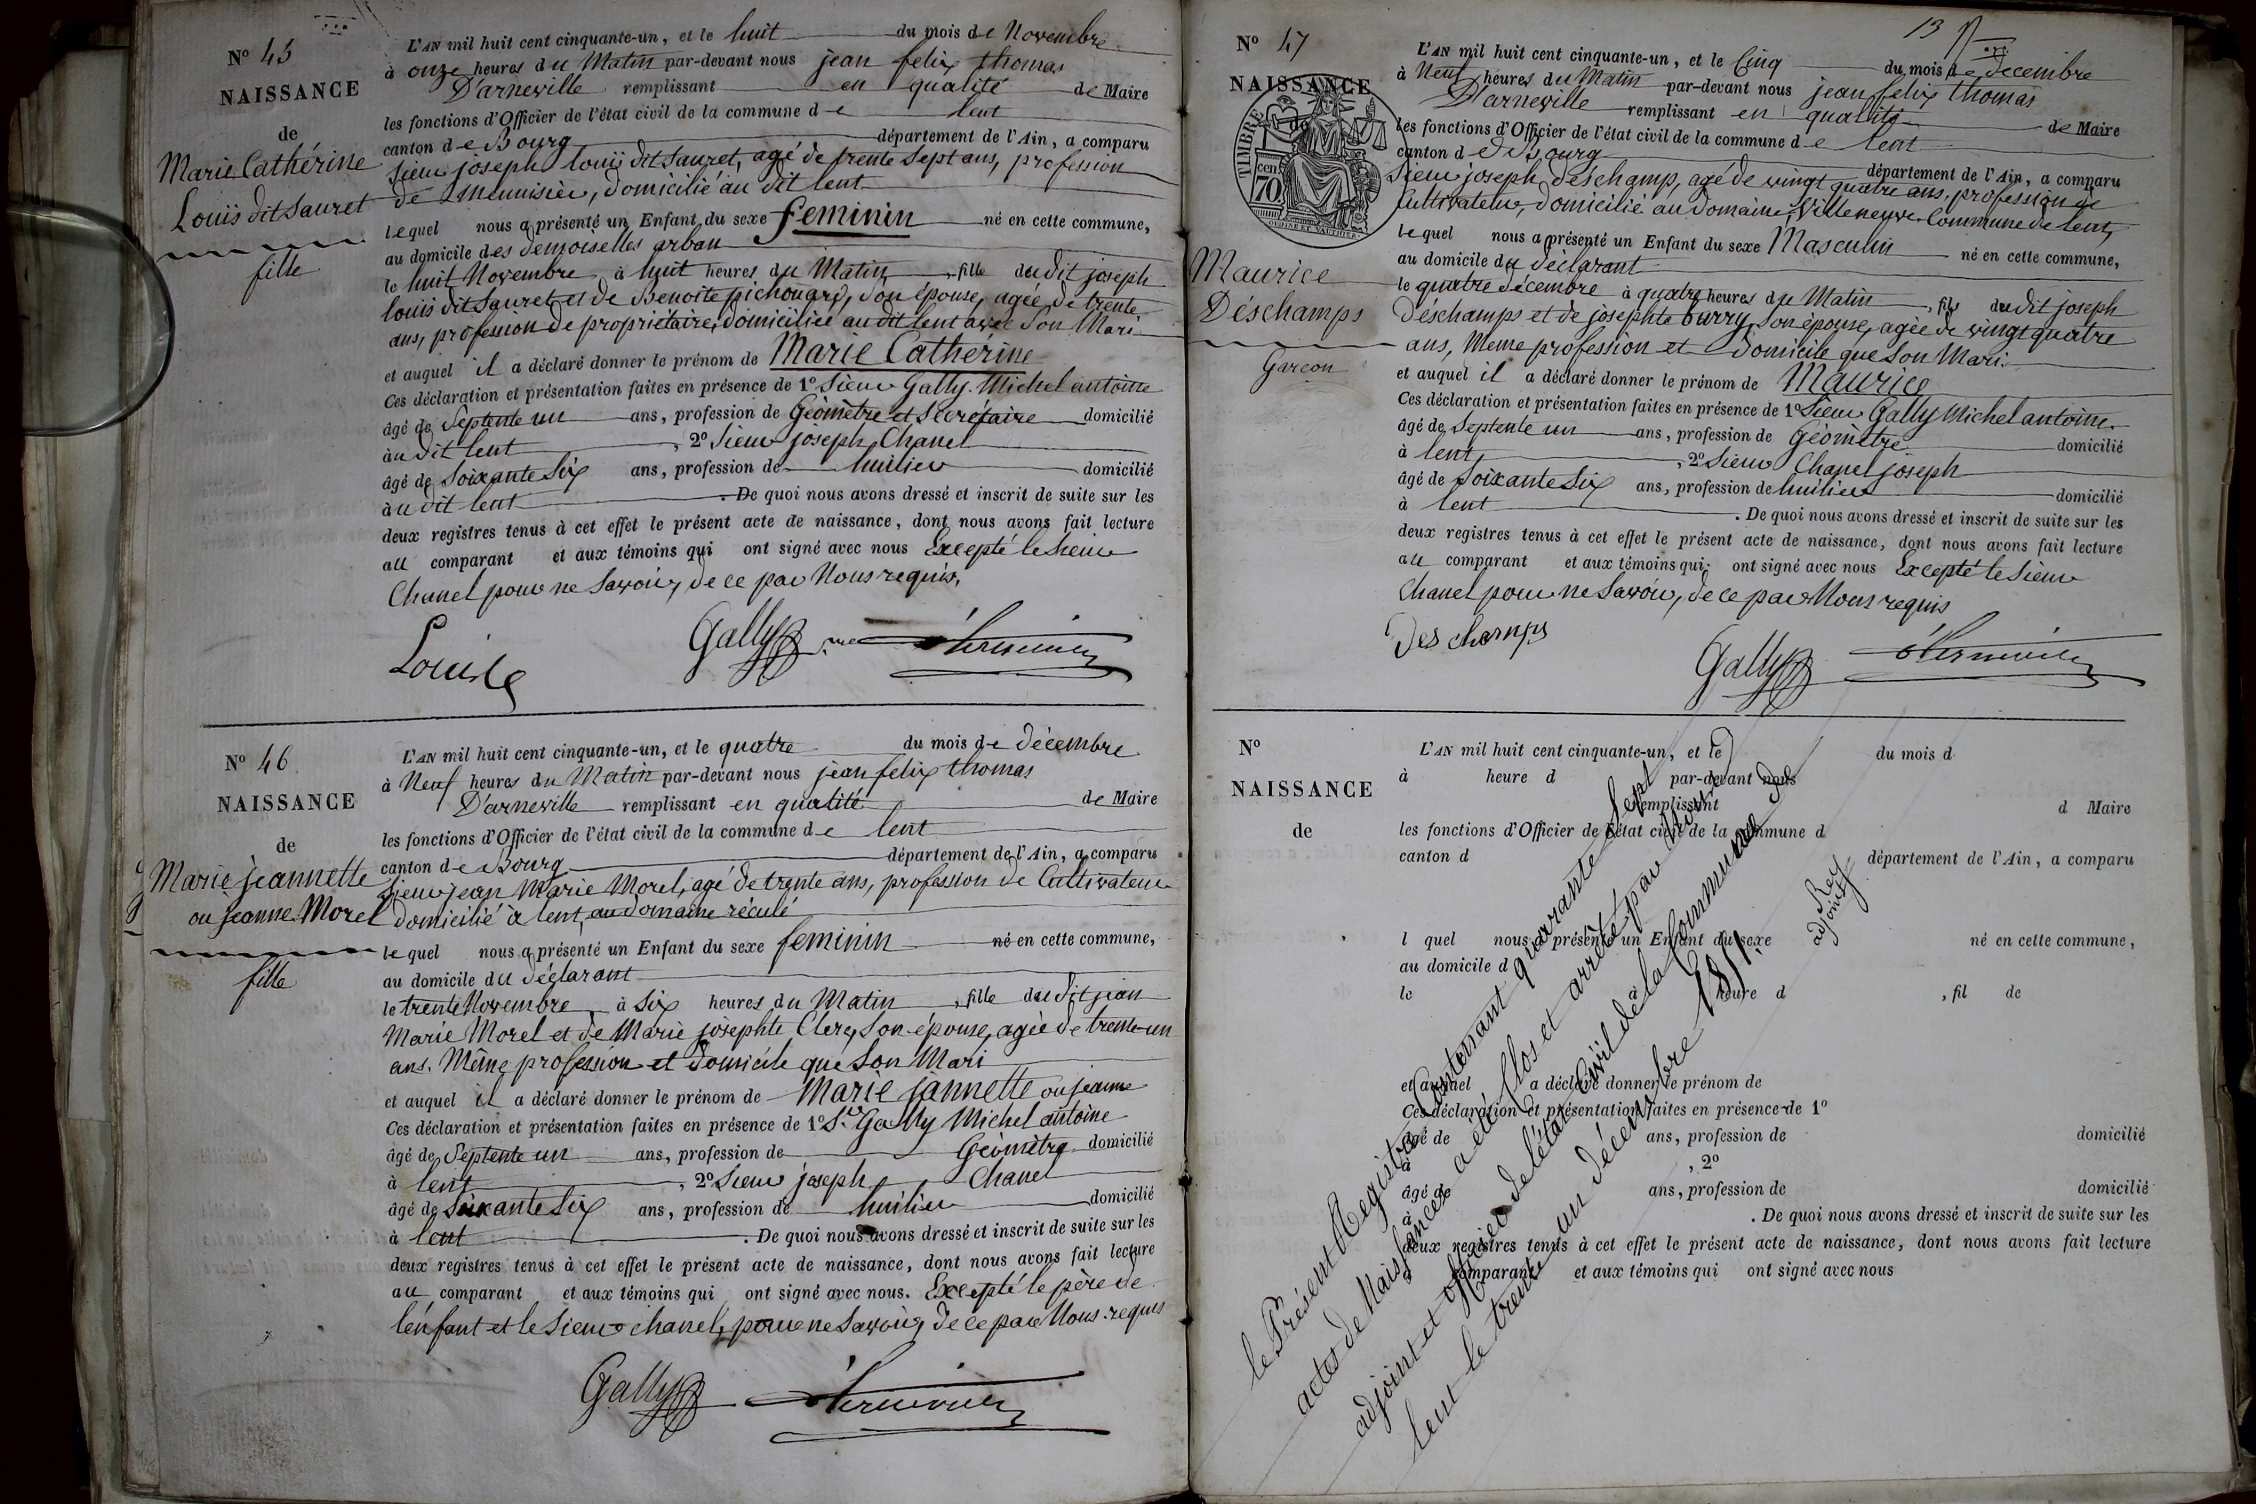 N° 45
NAISSANCE
de
Marie Cathérine
Louis dit Sauret
fille
L'AN mil huit cent cinquante-un, et le huit du mois de Novembre
à onze heures du Matin par-devant nous jean felix thomas
D'arneville remplissant en qualité de Maire
les fonctions d'Officier de l'état civil de la commune de lent
canton de Bourg département de l'Ain, a comparu
Sieur joseph louis dit Sauret, agé de trente Sept ans, profession
de Menuisier, domicilié au dit lent
lequel nous a présenté un Enfant du sexe feminin né en cette commune,
au domicile des demoiselles arban
le huit Novembre à huit heures du Matin, fille du dit joseph
louis dit Sauret et de Benoite pichouard, son épouse, agée de trente
ans, profession de propriétaire, domiciliée au dit lent avec Son Mari
et auquel il a déclaré donner le prénom de Marie Cathérine
Ces déclaration et présentation faites en présence de 1° Sieur Gally Michel antoine
âgé de Septente un ans, profession de Géomètre et Secrétaire domicilié
à au dit lent, 2° Sieur joseph Chanel
âgé de Soixante Six ans, profession de huilier domicilié
à u dit lent. De quoi nous avons dressé et inscrit de suite sur les
deux registres tenus à cet effet le présent acte de naissance, dont nous avons fait lecture
au comparant et aux témoins qui ont signé avec nous Excepté le Sieur
Chanel pour ne Savoir, de ce par Nous requis.
Gally
N° 46
NAISSANCE
de
Marie jeannette
ou jeanne Morel
fille
L'AN mil huit cent cinquante-un, et le quatre du mois de décembre
à Neuf heures du Matin par-devant nous jean felix thomas
D'arneville remplissant en qualité de Maire
les fonctions d'Officier de l'état civil de la commune de lent
canton de Bourg département de l'Ain, a comparu
Sieur jean Marie Morel, agé de trente ans, profession de Cultivateur
domicilié à lent, au domaine réculé
lequel nous a présenté un Enfant du sexe feminin né en cette commune,
au domicile du déclarant
le trente Novembre à Six heures du Matin, fille du dit jean
Marie Morel et de Marie josephte Clerc, Son épouse, agée de trente-un
ans. Même profession et domicile que Son Mari
et auquel il a déclaré donner le prénom de Marie jannette ou jeanne
Ces déclaration et présentation faites en présence de 1° Sr Gally Michel antoine
âgé de Septente un ans, profession de Géomètre domicilié
à lent, 2° Sieur joseph Chanel
âgé de Soixante Six ans, profession de huilier domicilié
à lent. De quoi nous avons dressé et inscrit de suite sur les
deux registres tenus à cet effet le présent acte de naissance, dont nous avons fait lecture
au comparant et aux témoins qui ont signé avec nous. Excepté le père de
l'énfant et le Sieur chanel, pour ne Savoir, de ce par Nous requis
Gally
13
N° 47
NAISSANCE
de
TIMBRE
cen
70
Maurice
Déschamps
Garcon
L'AN mil huit cent cinquante-un, et le Cinq du mois de decembre
à Neuf heures du Matin par-devant nous jean felix thomas
D'arneville remplissant en qualité de Maire
les fonctions d'Officier de l'état civil de la commune de lent
canton de Bourg département de l'Ain, a comparu
Sieur joseph déschamp, agé de vingt quatre ans, profession de
Cultivateur, domicilié au domaine, Villeneuve Commune de lent,
lequel nous a présenté un Enfant du sexe Masculin né en cette commune,
au domicile du déclarant
le quatre décembre à quatre heures du Matin, fils du dit joseph
Déschamps et de josephte burry, Son épouse, agée de vingt quatre
ans, Meme profession et domicile que Son Mari.
et auquel il a déclaré donner le prénom de Maurice
Ces déclaration et présentation faites en présence de 1° Sieur Gally Michel antoine
âgé de Septente un ans, profession de Géomètre domicilié
à lent, 2° Sieur Chanel joseph
âgé de Soixante Six ans, profession de huilier domicilié
à lent. De quoi nous avons dressé et inscrit de suite sur les
deux registres tenus à cet effet le présent acte de naissance, dont nous avons fait lecture
au comparant et aux témoins qui ont signé avec nous Excepté le Sieur
Chanel pour ne Savoir, de ce par Nous requis
Des champs
Gally
N°
NAISSANCE
de
L'AN mil huit cent cinquante-un, et le du mois d
à heure d par-devant nous
remplissant d Maire
les fonctions d'Officier de l'état civil de la commune d
canton d département de l'Ain, a comparu
l quel nous a présenté un Enfant du sexe né en cette commune,
au domicile d
le à heure d , fil de
et auquel a déclaré donner le prénom de
Ces déclaration et présentation faites en présence de 1°
âgé de ans, profession de domicilié
à , 2°
âgé de ans, profession de domicilié
à . De quoi nous avons dressé et inscrit de suite sur les
deux registres tenus à cet effet le présent acte de naissance, dont nous avons fait lecture
a comparant et aux témoins qui ont signé avec nous
le Présent Registre Contenant quarrante Sept
actes de Naissances a été Clos et arrêté par Nous
adjoint et officier de l'état Civil de la Commune de
lent le trente un décembre 1851.
Rey
adjoint